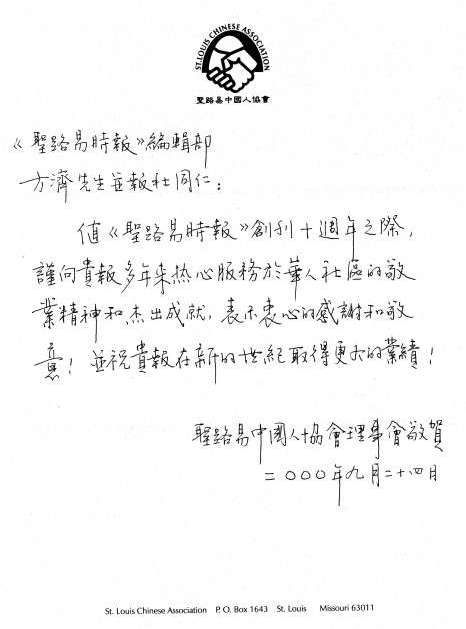 ST. LOUIS CHINESE ASSOCIATION
聖路易中國人協會
《聖路易時報》編輯部
方濟先生並報社同仁:
值《聖路易時報》創刊十週年之際,
謹向貴報多年来热心服務於華人社區的敬
業精神和杰出成就,表示衷心的感謝和敬
意!並祝貴報在新的世紀取得更大的業績!
聖路易中國人協會理事會敬賀
二〇〇〇年九月二十四日
St. Louis Chinese Association P. O. Box 1643 St. Louis Missouri 63011